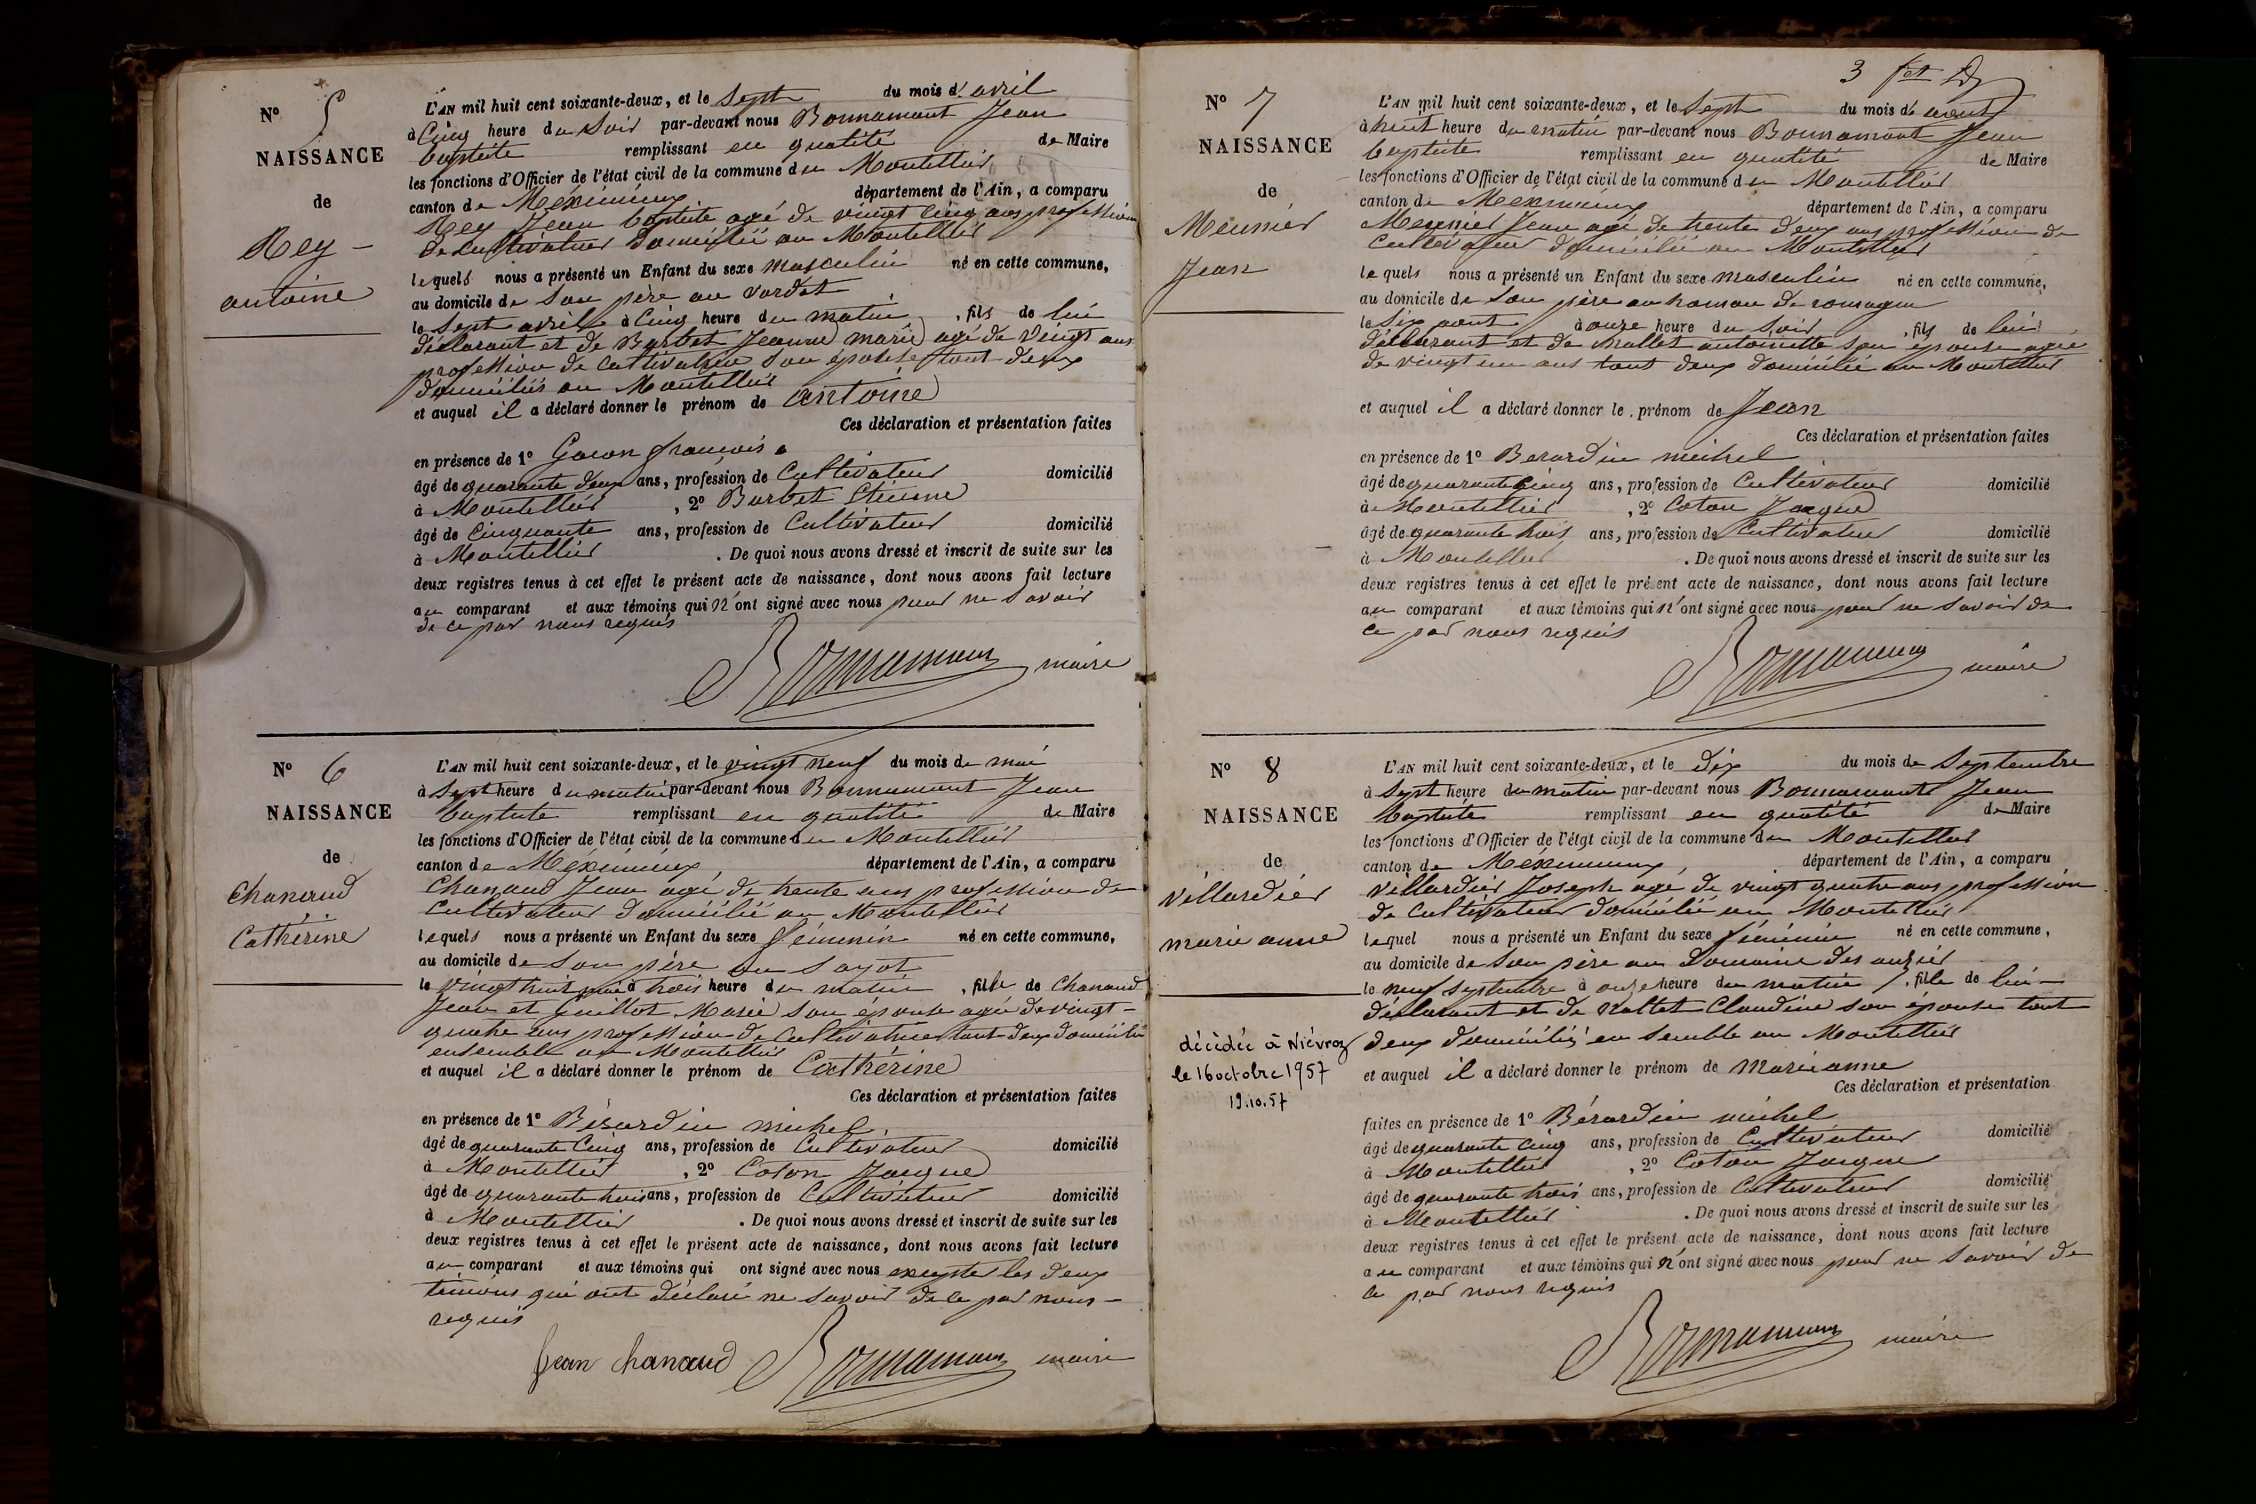 N° 5
NAISSANCE
de
Rey
antoine
L'AN mil huit cent soixante-deux, et le Sept du mois d'avril
à Cinq heure du Soir par-devant nous Bonnamant Jean
baptiste remplissant en qualité de Maire
les fonctions d'Officier de l'état civil de la commune du Montellier
canton de Méximieux département de l'Ain, a comparu
Rey Jean baptiste agé de vingt cinq ans profession
de cultivateur domicilié au Montellier
lequel nous a présenté un Enfant du sexe masculin né en cette commune,
au domicile de son père au
le Sept avril à Cinq heure du matin, fils de lui
déclarant et de Barbet Jeanne marie agé de Vingt ans
profession de cultivatrice son épouse tout deux
domiciliés au Montellier
et auquel il a déclaré donner le prénom de antoine
Ces déclaration et présentation faites
en présence de 1° françois
âgé de quarante deux ans, profession de Cultivateur domicilié
à Montellier, 2° Barbet Etienne
âgé de Cinquante ans, profession de Cultivateur domicilié
à Montellier. De quoi nous avons dressé et inscrit de suite sur les
deux registres tenus à cet effet le présent acte de naissance, dont nous avons fait lecture
au comparant et aux témoins qui n'ont signé avec nous pour ne Savoir
de ce par nous requis
Bonnamant maire
N° 6
NAISSANCE
de
Chanaud
Catherine
L'AN mil huit cent soixante-deux, et le vingt neuf du mois de mai
à Sept heure du matin par-devant nous Bonnamant Jean
baptiste remplissant en qualité de Maire
les fonctions d'Officier de l'état civil de la commune du Montellier
canton de Méximieux département de l'Ain, a comparu
Chanaud Jean agé de trente ans profession de
Cultivateur domicilié au Montellier
lequel nous a présenté un Enfant du sexe féminin né en cette commune,
au domicile de Son père au Sayot
le vingt huit mai à trois heure du matin, fille de Chanaud
Jean et Guillot Marie son épouse agé de vingt-
quatre ans profession de cultivatrice tout deux domicilié
ensemble au Montellier
et auquel il a déclaré donner le prénom de Catherine
Ces déclaration et présentation faites
en présence de 1° Bérardin michel
âgé de quarante Cinq ans, profession de Cultivateur domicilié
à Montellier, 2° Coton Jacque
âgé de quarante trois ans, profession de Cultivateur domicilié
à Montellier. De quoi nous avons dressé et inscrit de suite sur les
deux registres tenus à cet effet le présent acte de naissance, dont nous avons fait lecture
au comparant et aux témoins qui ont signé avec nous excepter les deux
témoins qui ont déclaré ne savoir de ce par nous-
requis
Jean chanaud Bonnamant maire
3
N° 7
NAISSANCE
de
Meunier
Jean
L'AN mil huit cent soixante-deux, et le Sept du mois de aout
à huit heure du matin par-devant nous Bonnamant Jean
baptiste remplissant en qualité de Maire
les fonctions d'Officier de l'état civil de la commune du Montellier
canton de Méximieux département de l'Ain, a comparu
Meunier Jean agé de trente deux ans profession de
Cultivateur domicilié au Montellier
lequel nous a présenté un Enfant du sexe masculin né en cette commune,
au domicile de Son père au hamau de romagne
le Six aout à onze heure du Soir, fils de lui
déclarant et de Mallet antoinette son épouse agée
de vingt un ans tout deux domicilié au Montellier
et auquel il a déclaré donner le prénom de Jean
Ces déclaration et présentation faites
en présence de 1° Berardin michel
âgé de quarante Cinq ans, profession de Cultivateur domicilié
à Montellier, 2° Coton Jacque
âgé de quarante trois ans, profession de Cultivateur domicilié
à Montellier. De quoi nous avons dressé et inscrit de suite sur les
deux registres tenus à cet effet le présent acte de naissance, dont nous avons fait lecture
au comparant et aux témoins qui n'ont signé avec nous pour ne savoir de
ce par nous requis
Bonnamant maire
N° 8
NAISSANCE
de
villardier
marie anne
décédée à Niévroz
le 16 octobre 1957
19.10.57
L'AN mil huit cent soixante-deux, et le dix du mois de Septembre
à Sept heure du matin par-devant nous Bonnamant Jean
baptiste remplissant en qualité de Maire
les fonctions d'Officier de l'état civil de la commune du Montellier
canton de Méximieux département de l'Ain, a comparu
villardier Joseph agé de vingt quatre ans profession
de Cultivateur domicilié au Montellier
lequel nous a présenté un Enfant du sexe féminin né en cette commune,
au domicile de Son père au Domaine des
le neuf septembre à onze heure du matin, fille de lui-
déclarant et de Claudine son épouse tout
deux domiciliés en semble au Montellier
et auquel il a déclaré donner le prénom de Marie anne
Ces déclaration et présentation
faites en présence de 1° Bérardin michel
âgé de quarante cinq ans, profession de Cultivateur domicilié
à Montellier, 2° Coton Jacque
âgé de quarante trois ans, profession de Cultivateur domicilié
à Montellier. De quoi nous avons dressé et inscrit de suite sur les
deux registres tenus à cet effet le présent acte de naissance, dont nous avons fait lecture
au comparant et aux témoins qui n'ont signé avec nous pour ne Savoir de
ce par nous requis
Bonnamant maire